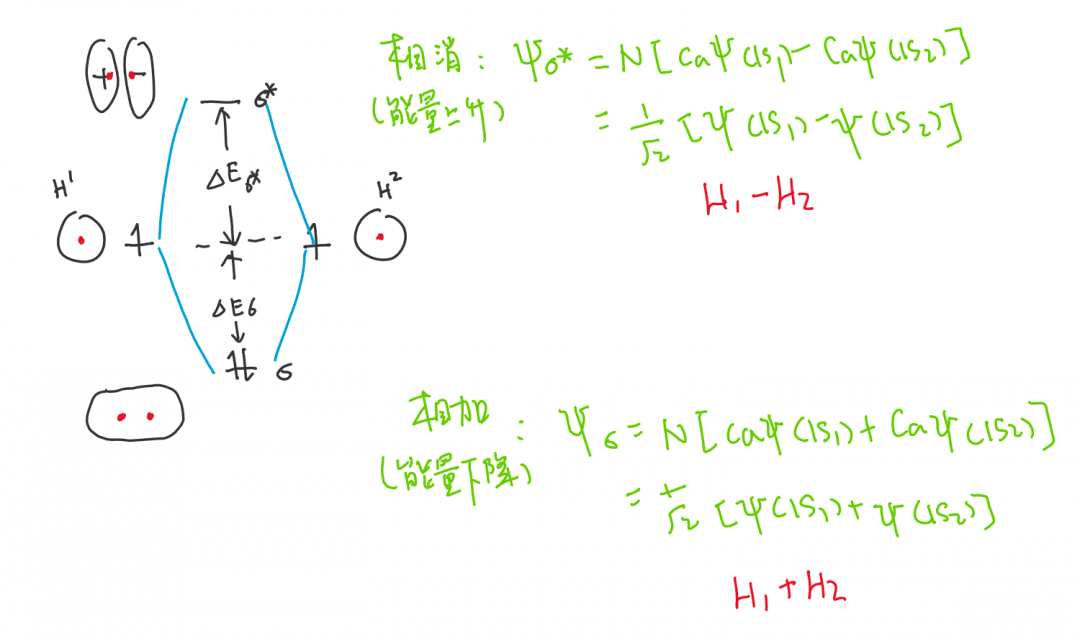 + -
σ*
ΔEσ*
H¹
H²
ΔEσ
σ
相消: Ψσ* = N[CaΨ(1S₁) - CaΨ(1S₂)]
(能量上升)
= 1/√2 [Ψ(1S₁) - Ψ(1S₂)]
H₁ - H₂
相加: Ψσ = N[CaΨ(1S₁) + CaΨ(1S2)]
(能量下降)
= 1/√2 [Ψ(1S₁) + Ψ(1S₂)]
H₁ + H₂